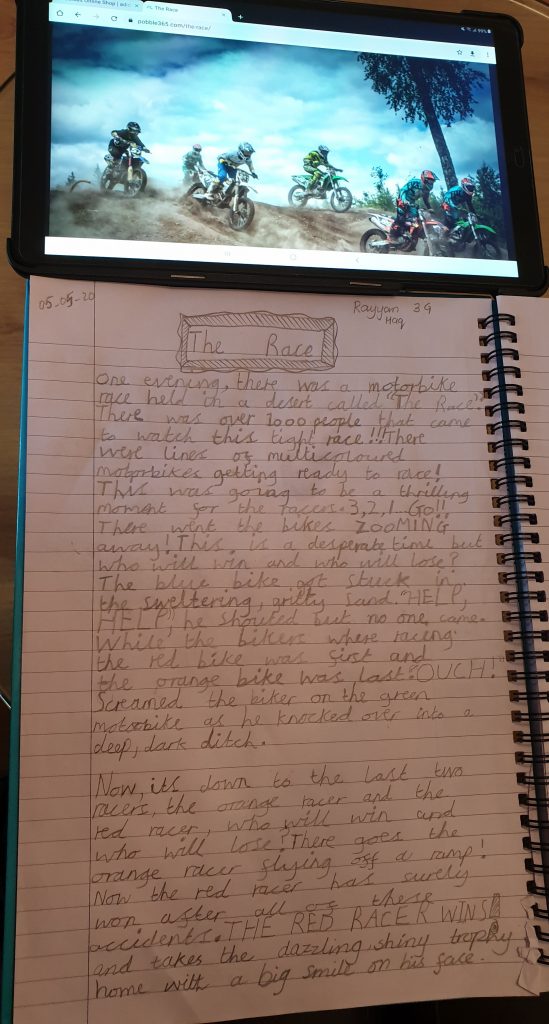 Online Shop | ad
The Race
pobble365.com/the-race/
99%
05-05-20
Rayyan 3G
Haq
The Race
One evening, there was a motorbike
race held in a desert called "The Race".
There was over 1000 people that came
to watch this tight race!!! There
were lines of multicoloured
motorbikes getting ready to race!
This was going to be a thrilling
moment for the racers. 3,2,1 Go!!
There went the bikes ZOOMING
away! This is a desperate time but
who will win and who will lose?
The blue bike got stuck in
the sweltering, gritty sand. "HELP,
HELP", he shouted but no one came.
While the bikers where racing
the red bike was first and
the orange bike was last. "OUCH!"
Screamed the biker on the green
motorbike as he knocked over into a
deep, dark ditch.
Now, its down to the last two
racers, the orange racer and the
red racer, who will win and
who will lose? There goes the
orange racer flying off a ramp!
Now the red racer has surely
won after all of these
accidents. THE RED RACER WINS!
and takes the dazzling, shiny trophy
home with a big smile on his face.